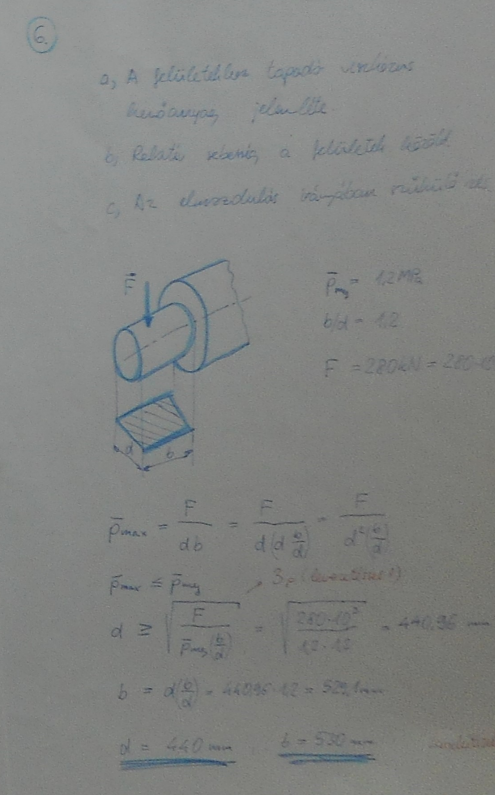 6.
a, A felületekhez tapadó viszkózus
kenőanyag jelenléte.
b, Relatív sebesség a felületek között
c, Az elmozdulás irányában szűkülő rés
F
p̄meg = 1,2 MPa
b/d = 1,2
F = 280kN = 280·10
d b
p̄max = F/(db) = F/(d(d b/d)) = F/(d²(b/d))
p̄max ≤ p̄meg
3p (levezetésért)
d ≥ √(F/(p̄meg(b/d))) = √(280·10³/(1,2·1,2)) = 440,96 mm
b = d(b/d) = 440,96·1,2 = 529,1mm
d = 440 mm b = 530 mm